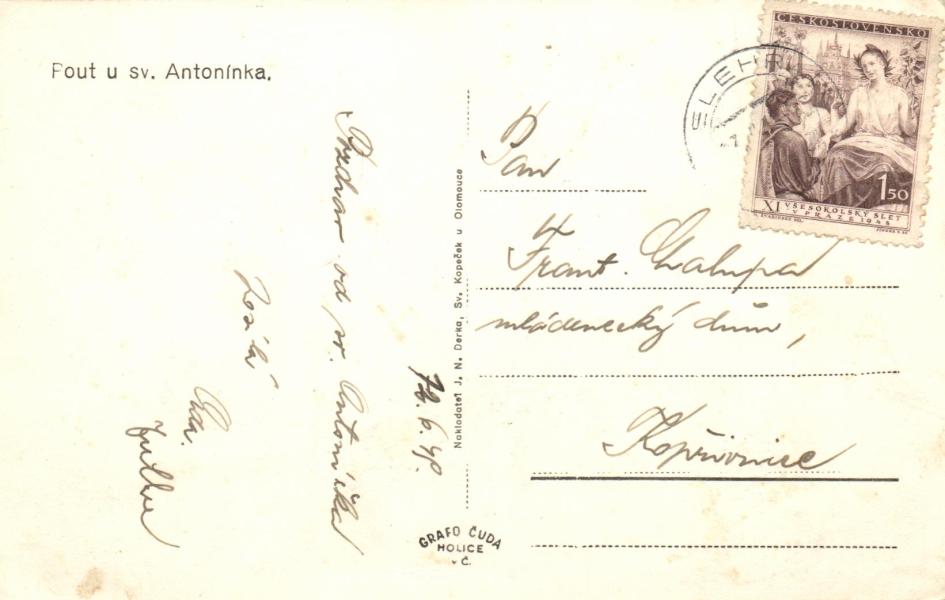 Pout u sv. Antonínka.
Pozdrav od sv. Antoníčka
zasílá
12.6.49.
Nakladatel J. N. Derka, Sv. Kopeček u Olomouce
GRAFO ČUDA
HOLICE
v Č.
ČESKOSLOVENSKO
1 50
XI. VŠESOKOLSKÝ SLET
V PRAZE 1948
Pan
Frant. Chalupa
mládenecký dům,
Kopřivnice